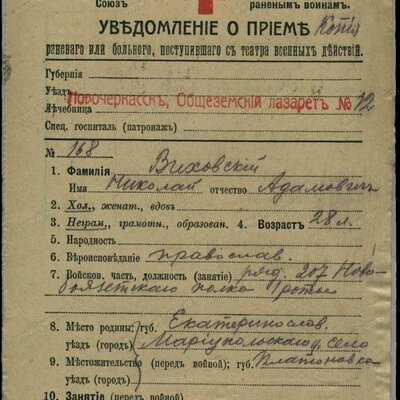 Союзъ раненымъ воинамъ.
УВѢДОМЛЕНІЕ О ПРІЕМѢ Копія
раненаго или больного, поступившаго съ театра военныхъ дѣйствій.
Губернія
Уѣздъ
Новочеркасскъ, Общеземскій лазаретъ № 12
Лечебница
Спец. госпиталь (патронажъ)
№ 168
1. Фамилія Виховскій
Имя Николай отчество Адамовичъ
2. Хол., женат., вдовъ
3. Неграм., грамотн., образован. 4. Возрастъ 28 л.
5. Народность
6. Вѣроисповѣданіе православ.
7. Войсков. часть, должность (занятіе) ряд. 207 Ново-
баязетскаго полка роты
8. Мѣсто родины: губ. Екатеринослав.
уѣздъ (городъ) Маріупольскаго у, село
9. Мѣстожительство (передъ войной); губ. Платоновка
уѣздъ (городъ)
10. Занятіе (передъ войной)